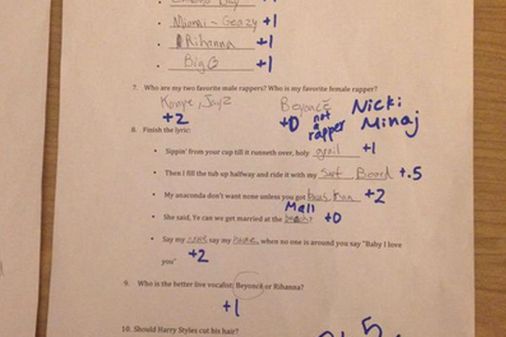 Miami - Geazy +1
Rihanna +1
Big G +1
7. Who are my two favorite male rappers? Who is my favorite female rapper?
Kanye, Jay Z Beyoncé Nicki Minaj
+2 +0 not a rapper
8. Finish the lyric:
• Sippin' from your cup till it runneth over, holy grail +1
• Then I fill the tub up halfway and ride it with my Surf Board +.5
• My anaconda don't want none unless you got buns, hun +2
Mall
• She said, Ye can we get married at the +0
• Say my name say my name, when no one is around you say "Baby I love
you" +2
9. Who is the better live vocalist: Beyoncé or Rihanna?
+1
10. Should Harry Styles cut his hair?